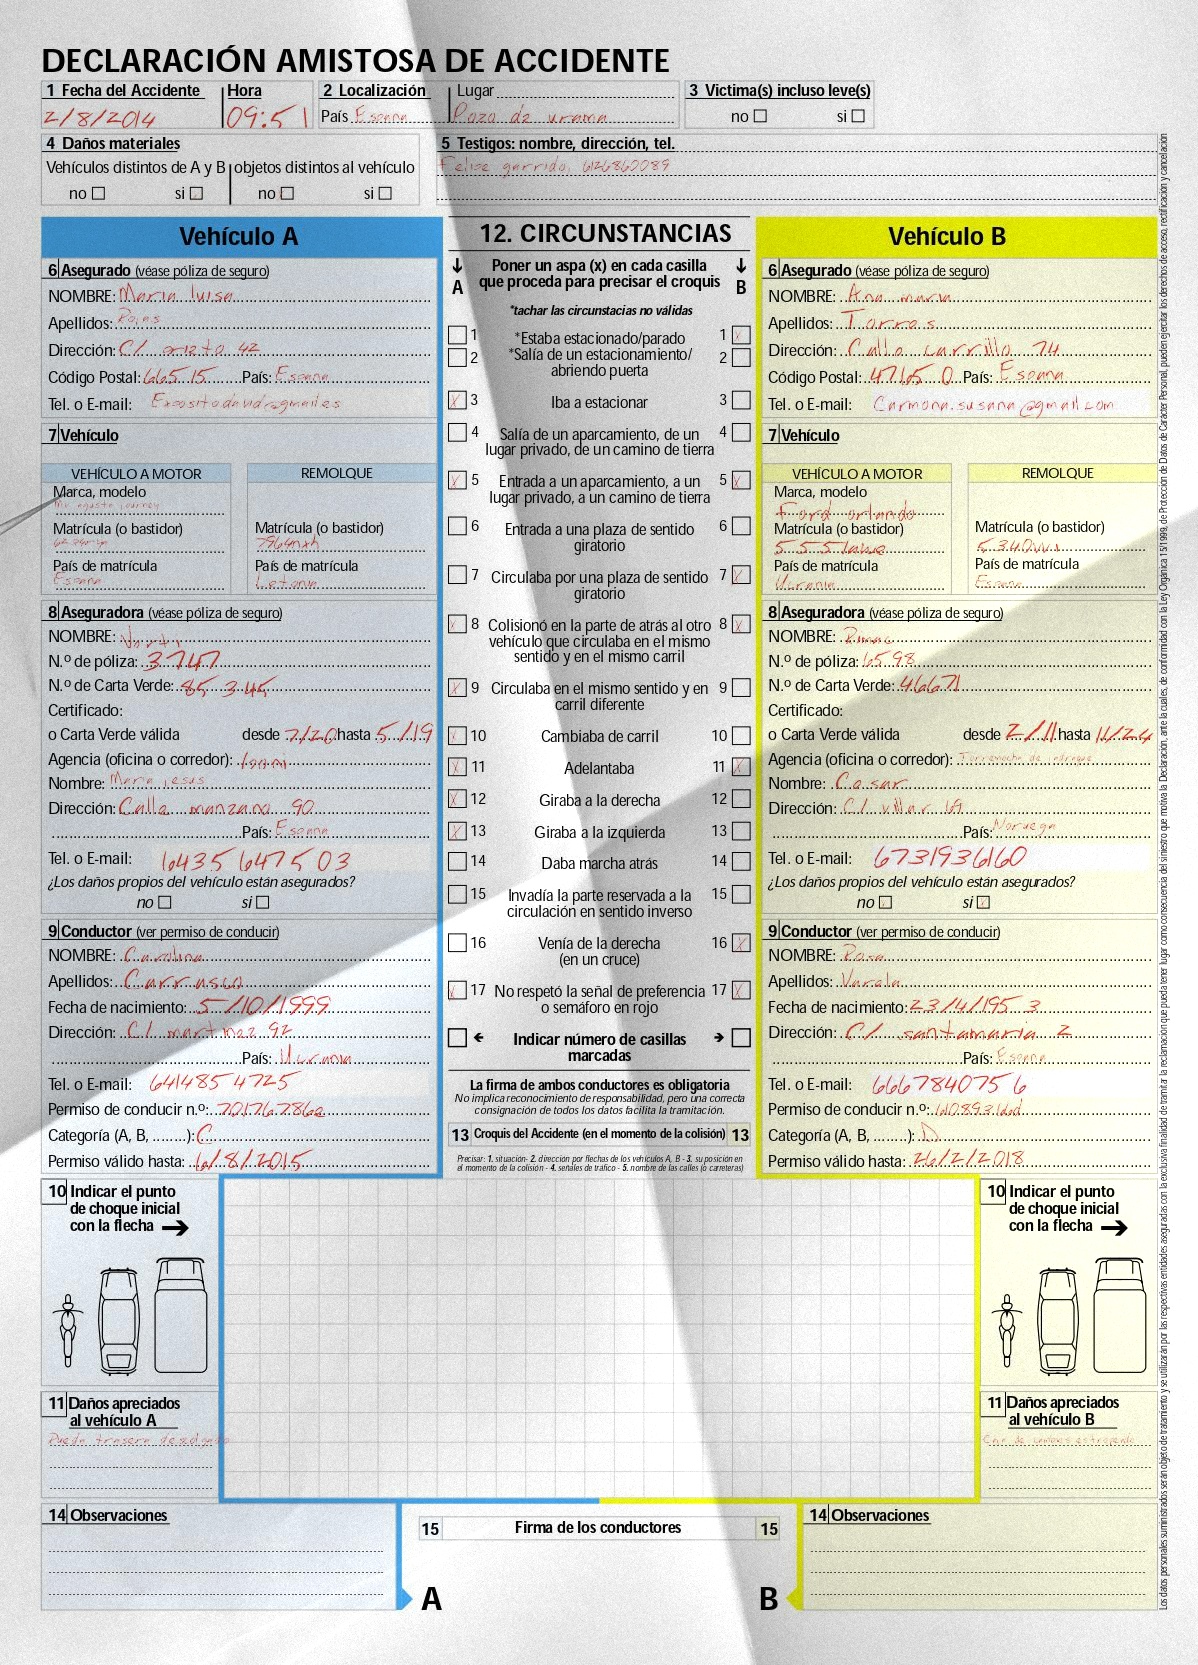 DECLARACIÓN AMISTOSA DE ACCIDENTE
1 Fecha del Accidente Hora 2 Localización Lugar 3 Victima(s) incluso leve(s)
2/8/2014 09:51 País Espana Pozo de urama no si
4 Daños materiales 5 Testigos: nombre, dirección, tel.
Vehículos distintos de A y B objetos distintos al vehículo Felipe garrido, 626860089
no si no si
Vehículo A 12. CIRCUNSTANCIAS Vehículo B
6 Asegurado (véase póliza de seguro)
NOMBRE: Maria luisa
Apellidos: Rojas
Dirección: C/. prieto 42
Código Postal: 66515 País: Espana
Tel. o E-mail: Expositodavid@gmail.es
7 Vehículo
VEHÍCULO A MOTOR REMOLQUE
Marca, modelo
Matrícula (o bastidor) Matrícula (o bastidor)
7964nxh
País de matrícula País de matrícula
Espana Letonia
8 Aseguradora (véase póliza de seguro)
NOMBRE:
N.º de póliza: 3747
N.º de Carta Verde: 85345
Certificado:
o Carta Verde válida desde 7/20 hasta 5/19
Agencia (oficina o corredor):
Nombre: Maria jesus
Dirección: Calle manzano 90
País: Espana
Tel. o E-mail: 6435647503
¿Los daños propios del vehículo están asegurados?
no si
9 Conductor (ver permiso de conducir)
NOMBRE: Carolina
Apellidos: Carrasco
Fecha de nacimiento: 5/10/1999
Dirección: C/. martinez 92
País: Ucrania
Tel. o E-mail: 6414854725
Permiso de conducir n.º:
Categoría (A, B, ........): C
Permiso válido hasta: 6/8/2015
↓ Poner un aspa (x) en cada casilla ↓
A que proceda para precisar el croquis B
*tachar las circunstacias no válidas
1 *Estaba estacionado/parado 1 x
2 *Salía de un estacionamiento/ 2
abriendo puerta
x 3 Iba a estacionar 3
4 Salía de un aparcamiento, de un 4
lugar privado, de un camino de tierra
x 5 Entrada a un aparcamiento, a un 5 x
lugar privado, a un camino de tierra
6 Entrada a una plaza de sentido 6
giratorio
7 Circulaba por una plaza de sentido 7 x
giratorio
x 8 Colisionó en la parte de atrás al otro 8 x
vehículo que circulaba en el mismo
sentido y en el mismo carril
x 9 Circulaba en el mismo sentido y en 9
carril diferente
x 10 Cambiaba de carril 10
x 11 Adelantaba 11 x
x 12 Giraba a la derecha 12
x 13 Giraba a la izquierda 13
14 Daba marcha atrás 14
15 Invadía la parte reservada a la 15
circulación en sentido inverso
16 Venía de la derecha 16 x
(en un cruce)
x 17 No respetó la señal de preferencia 17 x
o semáforo en rojo
← Indicar número de casillas →
marcadas
La firma de ambos conductores es obligatoria
No implica reconocimiento de responsabilidad, pero una correcta
consignación de todos los datos facilita la tramitación.
13 Croquis del Accidente (en el momento de la colisión) 13
Precisar: 1. situación- 2. dirección por flechas de los vehículos A, B - 3. su posición en
el momento de la colisión - 4. señales de tráfico - 5. nombre de las calles (o carreteras)
6 Asegurado (véase póliza de seguro)
NOMBRE: Ana maria
Apellidos: Torres
Dirección: Calle carrillo 74
Código Postal: 47165 0 País: Espana
Tel. o E-mail: Carmona.susana@gmail.com
7 Vehículo
VEHÍCULO A MOTOR REMOLQUE
Marca, modelo
Ford orlando
Matrícula (o bastidor) Matrícula (o bastidor)
País de matrícula País de matrícula
Ucrania Espana
8 Aseguradora (véase póliza de seguro)
NOMBRE: Rimac
N.º de póliza: 6598
N.º de Carta Verde: 46671
Certificado:
o Carta Verde válida desde 2/11 hasta 11/24
Agencia (oficina o corredor): Torremocha de jadraque
Nombre: Cesar
Dirección: C/. villar 19
País: Noruega
Tel. o E-mail: 6731936160
¿Los daños propios del vehículo están asegurados?
no si
9 Conductor (ver permiso de conducir)
NOMBRE: Rosa
Apellidos: Varela
Fecha de nacimiento: 23/4/1953
Dirección: C/. santamaria 2
País: Espana
Tel. o E-mail: 6667840756
Permiso de conducir n.º:
Categoría (A, B, ........): D
Permiso válido hasta: 26/2/2018
10 Indicar el punto
de choque inicial
con la flecha →
11 Daños apreciados
al vehículo A
10 Indicar el punto
de choque inicial
con la flecha →
11 Daños apreciados
al vehículo B
Caja de cambios estropeada
14 Observaciones 15 Firma de los conductores 15 14 Observaciones
A B
Los datos personales suministrados serán objeto de tratamiento y se utilizarán por las respectivas entidades aseguradas con la exclusiva finalidad de tramitar la reclamación que pueda tener lugar como consecuencia del siniestro que motiva la Declaración, ante la cuales, de conformidad con la Ley Orgánica 15/1999, de Protección de Datos de Carácter Personal, pueden ejercitar los derechos de acceso, rectificación y cancelación